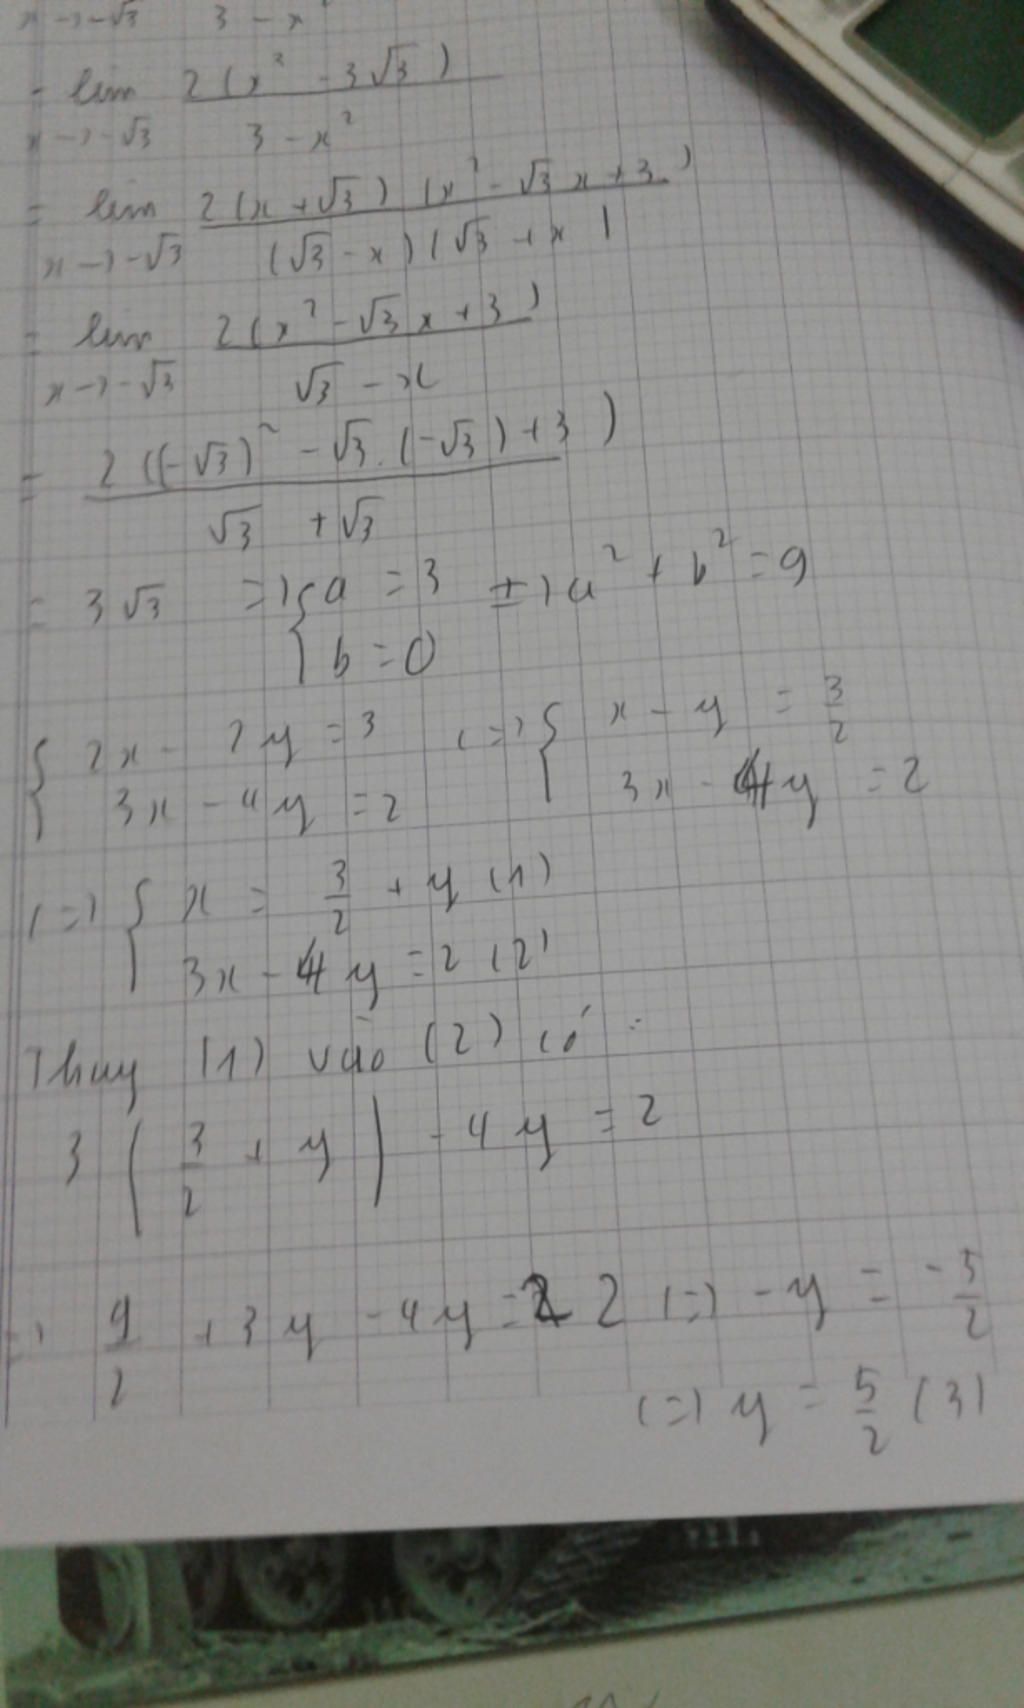 x -> -√3   3 - x
= lim 2(x² - 3√3)
x -> -√3   3 - x²
= lim 2(x + √3)(x² - √3x + 3)
x -> -√3   (√3 - x)(√3 + x)
= lim 2(x² - √3x + 3)
x -> -√3   √3 - x
= 2((-√3)² - √3.(-√3) + 3)
√3 + √3
= 3√3 => { a = 3 => a² + b² = 9
b = 0
{ 2x - 2y = 3 <=> { x - y = 3/2
3x - 4y = 2   3x - 4y = 2
<=> { x = 3/2 + y (1)
3x - 4y = 2 (2)
Thay (1) vào (2) có :
3(3/2 + y) - 4y = 2
=> 9/2 + 3y - 4y = 2 <=> -y = -5/2
<=> y = 5/2 (3)